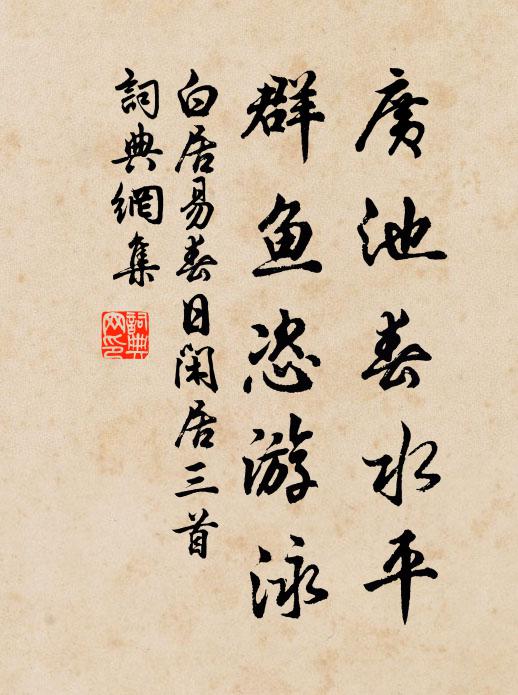 廣池春水平
群魚恣游泳
白居易春日閑居三首
詞典網集
詞典
网印